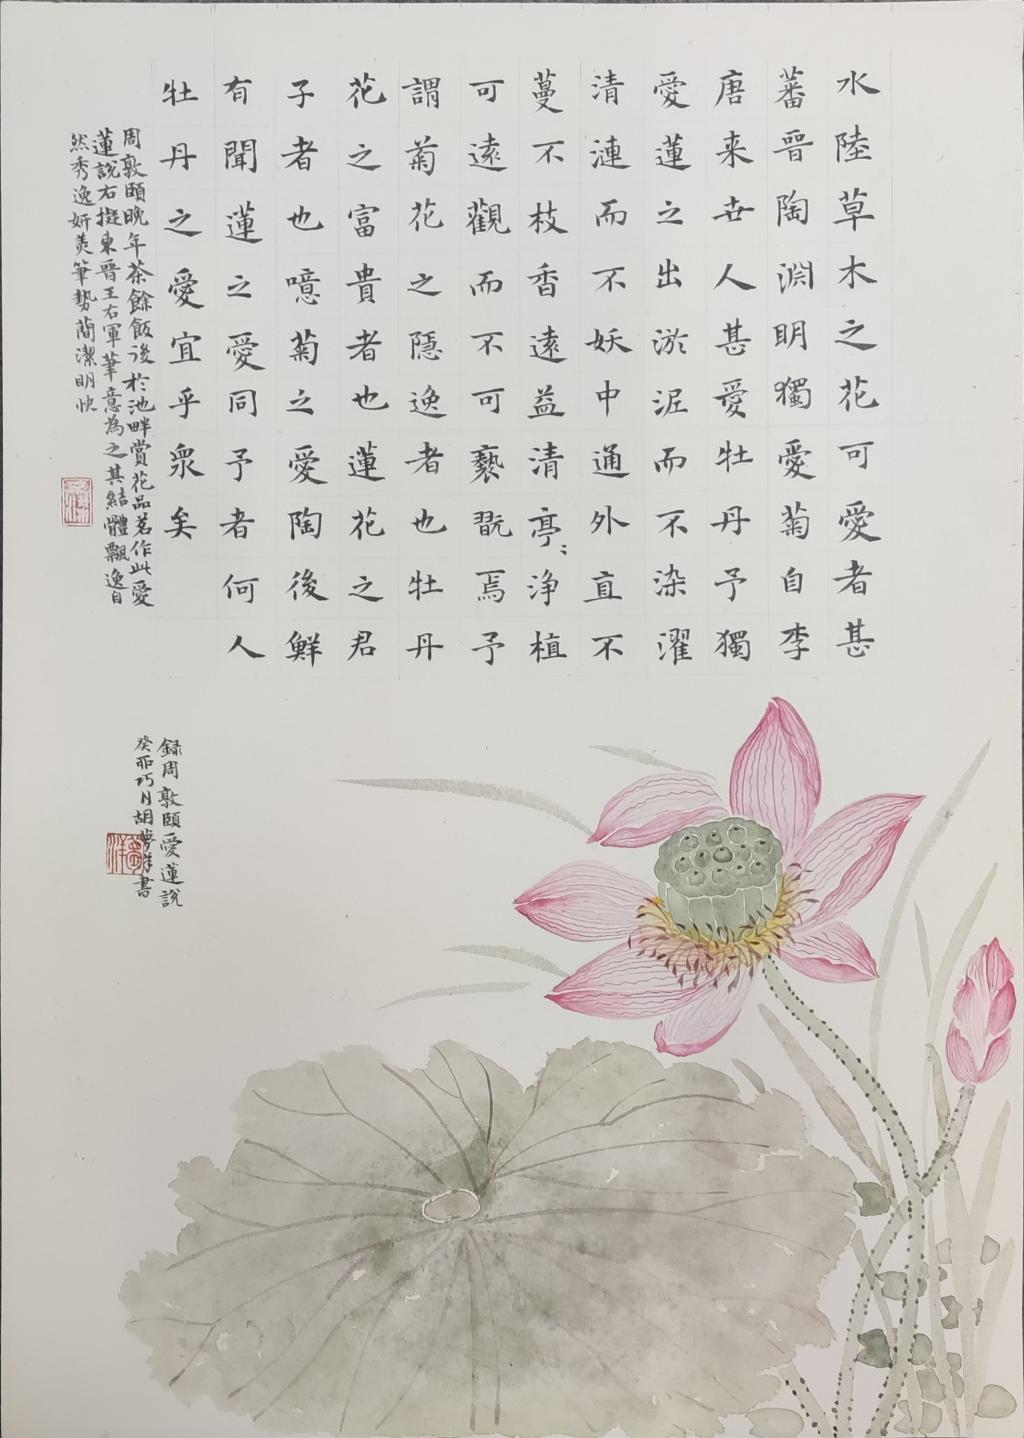 水陸草木之花可愛者甚
蕃晉陶淵明獨愛菊自李
唐来世人甚愛牡丹予獨
愛蓮之出淤泥而不染濯
清漣而不妖中通外直不
蔓不枝香遠益清亭〻淨植
可遠觀而不可褻翫焉予
謂菊花之隱逸者也牡丹
花之富貴者也蓮花之君
子者也噫菊之愛陶後鮮
有聞蓮之愛同予者何人
牡丹之愛宜乎衆矣
周敦頤晚年茶餘飯後於池畔賞花品茗作此愛
蓮說右擬東晉王右軍筆意為之其結體飄逸自
然秀逸妍美筆勢蕑潔明快
録周敦頤愛蓮說
癸卯巧月胡夢洋書